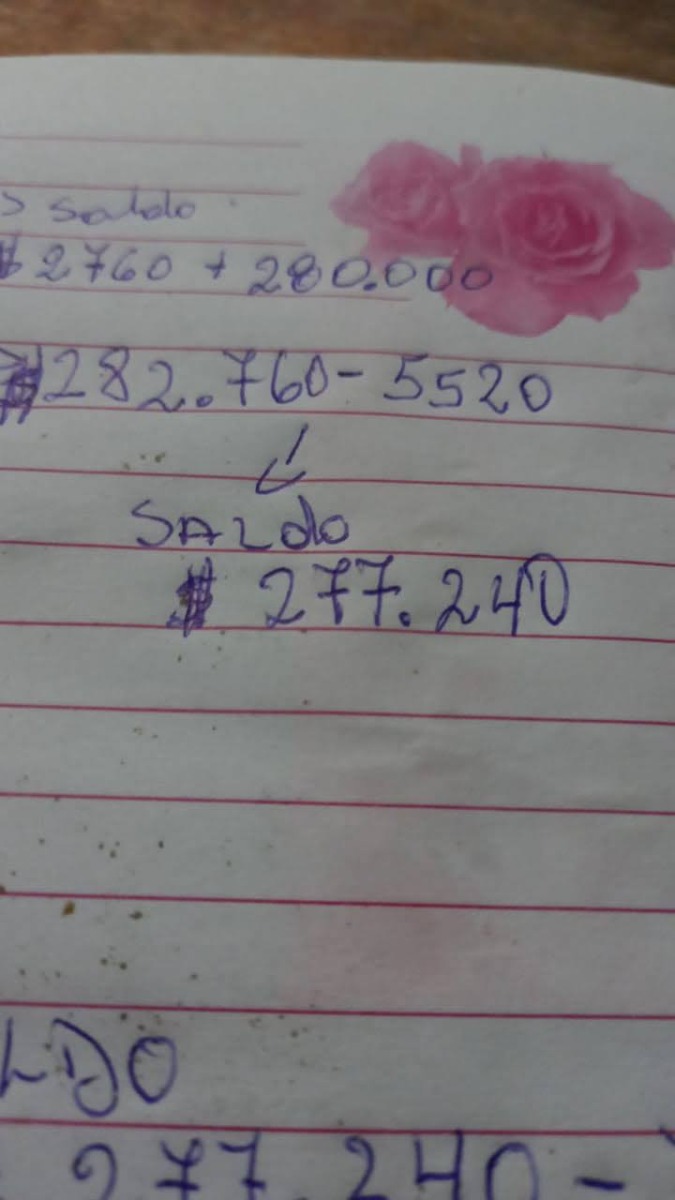 > Saldo
$ 2760 + 280.000
$ 282.760 - 5520
SALdo
$ 277.240
LDO
277.240 -